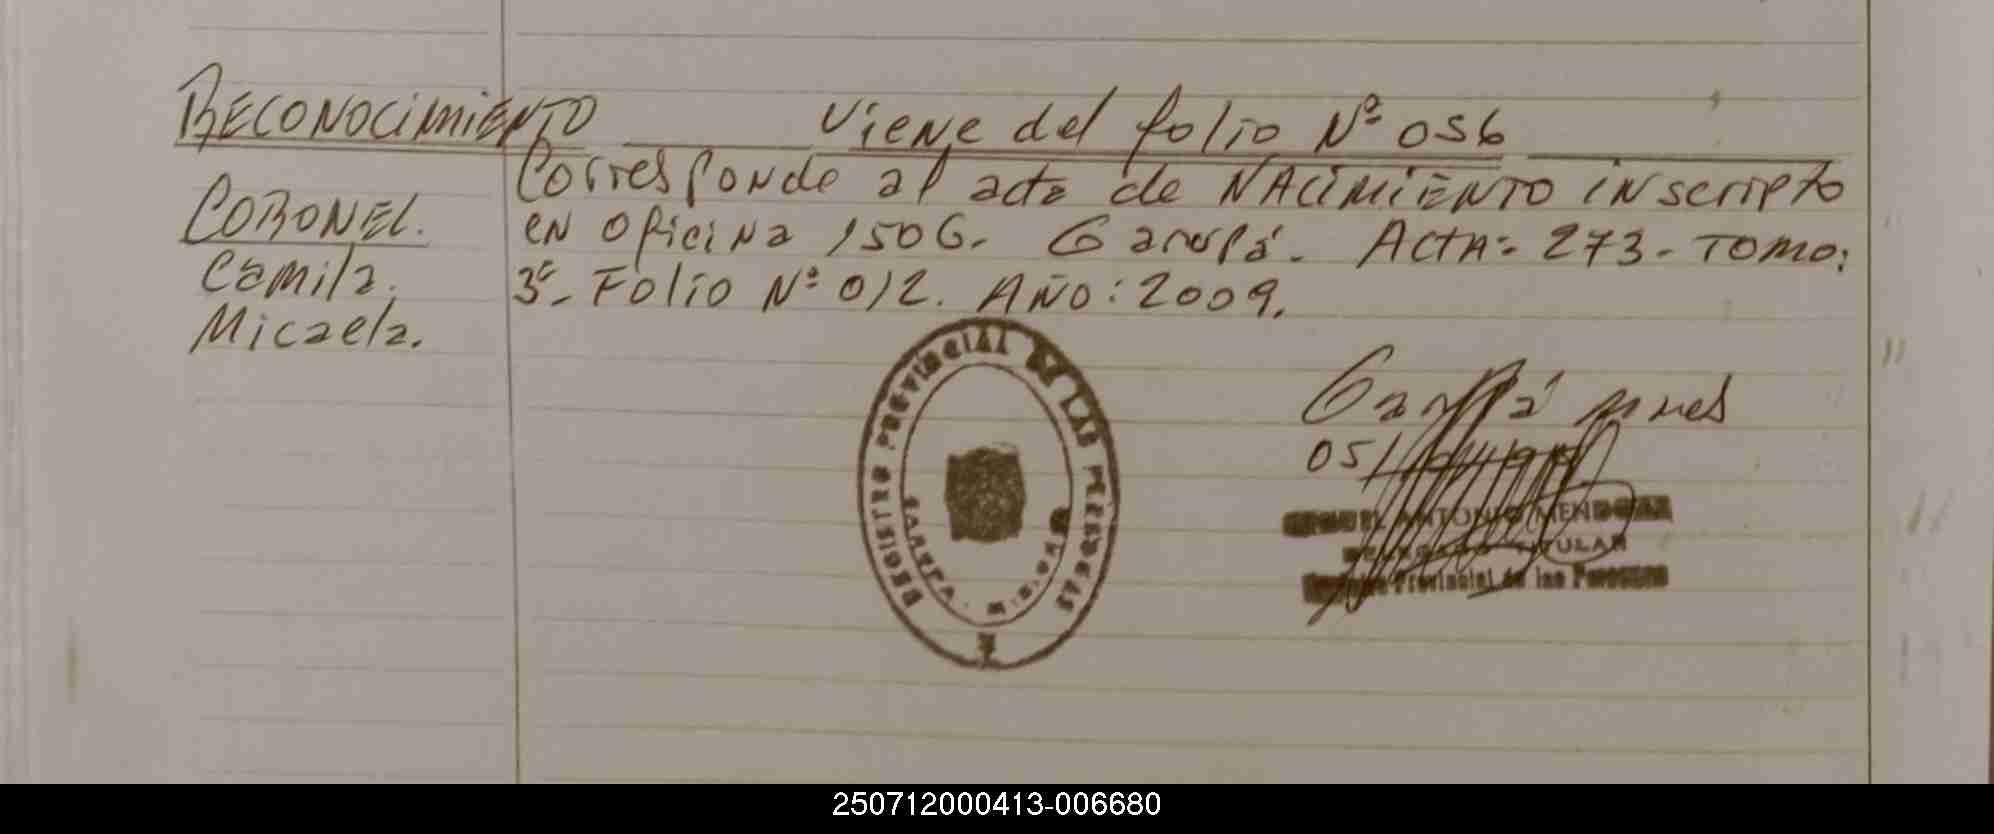 RECONOCIMIENTO
CORONEL.
Camila.
Micaela.
Viene del folio Nº 056
Corresponde al acta de NACIMIENTO inscripto
en oficina 1506. Garupá. ACTA: 273. TOMO:
3º. Folio Nº 012. AÑO: 2009.
REGISTRO PROVINCIAL DE LAS PERSONAS
Garupá
05/
ANTONIO
TITULAR
Provincial de las Personas
250712000413-006680